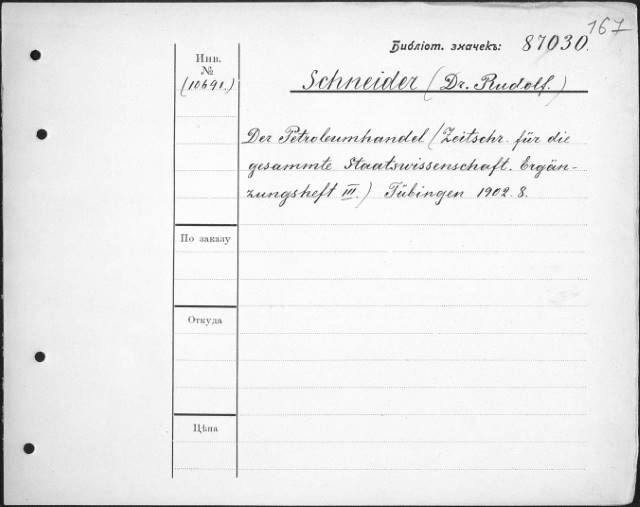 167
Библіот. значекъ: 87030.
Инв.
№
(10691.)
Schneider (Dr. Rudolf.)
Der Petroleumhandel (Zeitschr. für die
gesammte Staatswissenschaft. Ergän-
zungsheft III.) Tübingen 1902. 8.
По заказу
Откуда
Цѣна